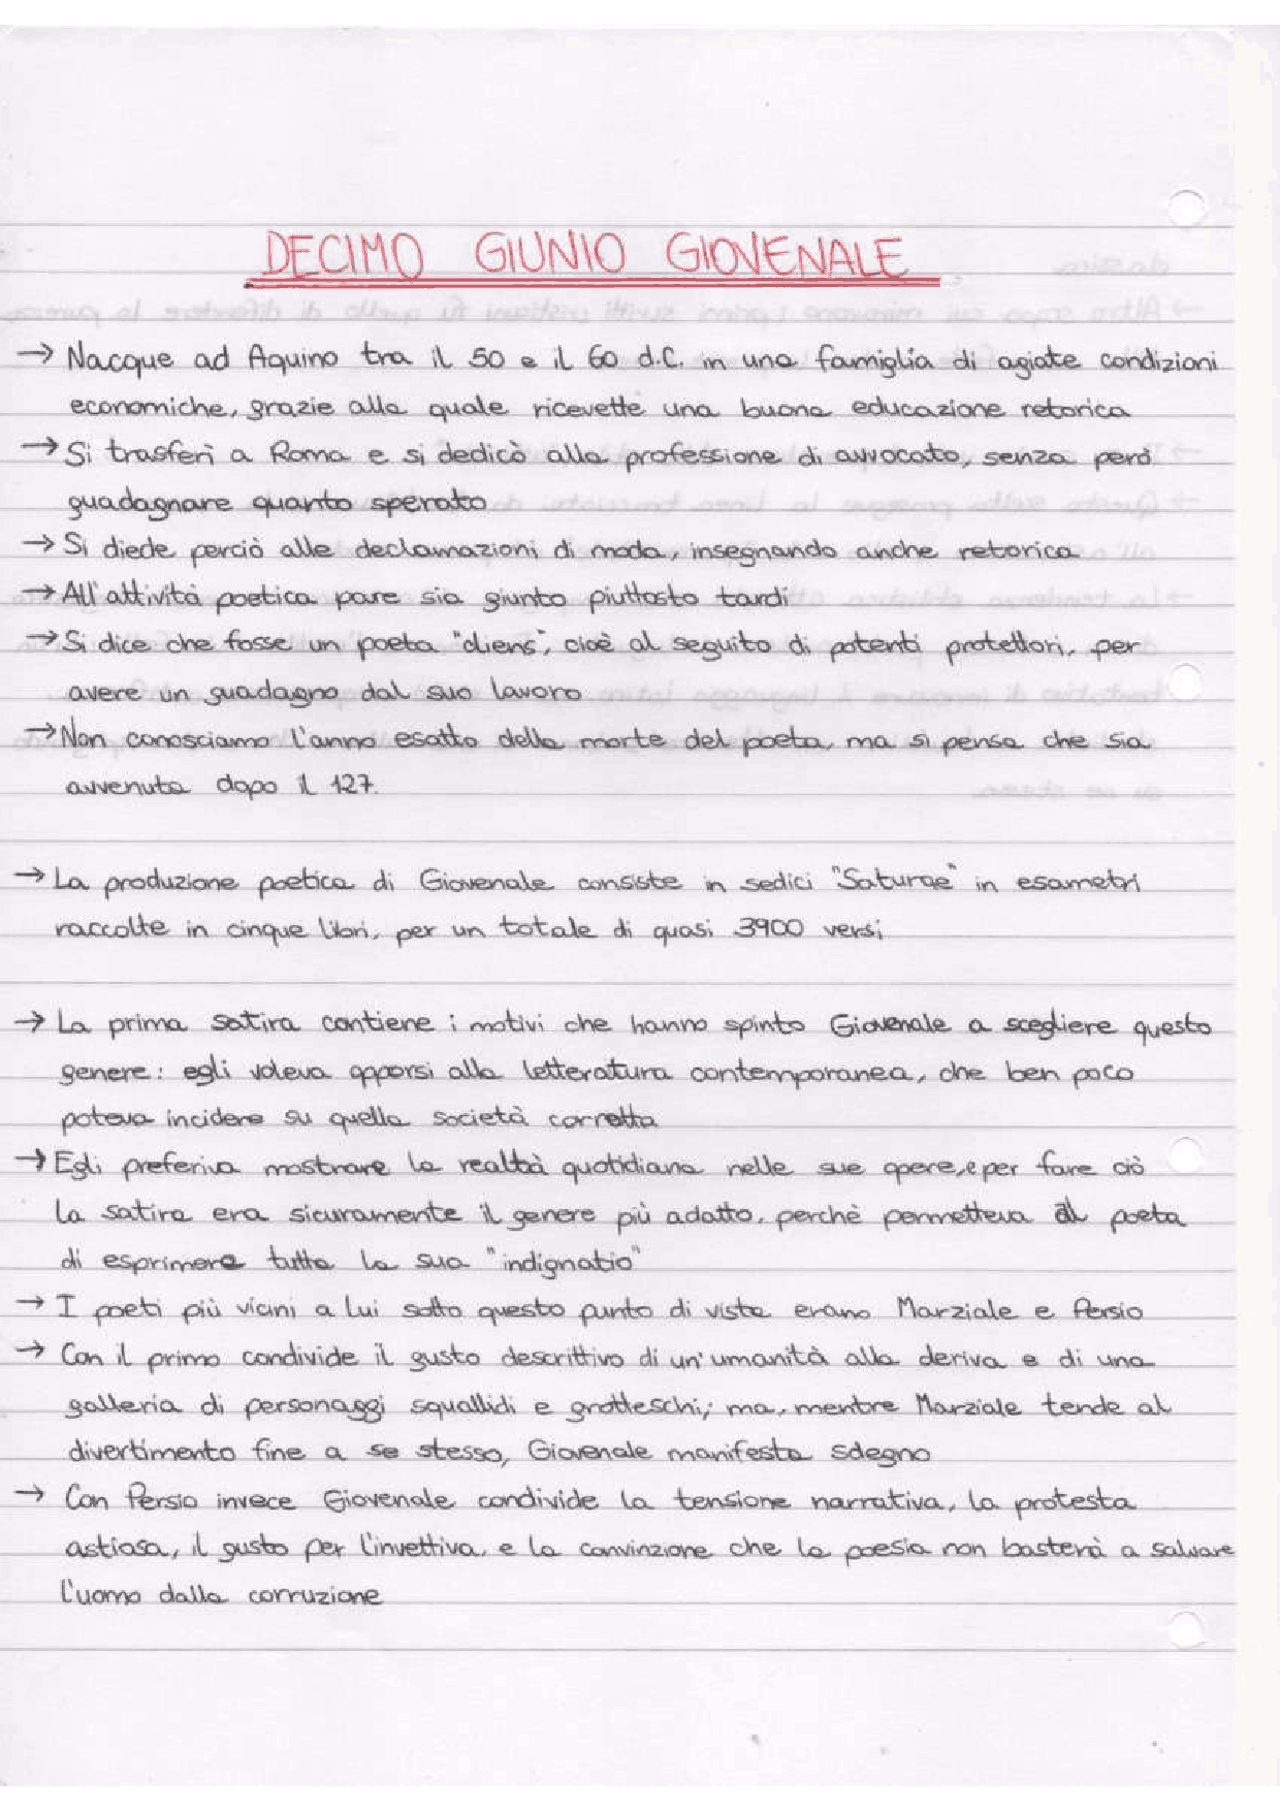 DECIMO GIUNIO GIOVENALE
→ Nacque ad Aquino tra il 50 e il 60 d.C. in una famiglia di agiate condizioni
economiche, grazie alla quale ricevette una buona educazione retorica
→ Si trasferì a Roma e si dedicò alla professione di avvocato, senza però
guadagnare quanto sperato
→ Si diede perciò alle declamazioni di moda, insegnando anche retorica
→ All'attività poetica pare sia giunto piuttosto tardi
→ Si dice che fosse un poeta "cliens", cioè al seguito di potenti protettori, per
avere un guadagno dal suo lavoro
→ Non conosciamo l'anno esatto della morte del poeta, ma si pensa che sia
avvenuta dopo il 127.
→ La produzione poetica di Giovenale consiste in sedici "Saturae" in esametri
raccolte in cinque libri, per un totale di quasi 3900 versi
→ La prima satira contiene i motivi che hanno spinto Giovenale a scegliere questo
genere: egli voleva opporsi alla letteratura contemporanea, che ben poco
poteva incidere su quella società corrotta
→ Egli preferiva mostrare la realtà quotidiana nelle sue opere, e per fare ciò
la satira era sicuramente il genere più adatto, perchè permetteva al poeta
di esprimere tutta la sua "indignatio"
→ I poeti più vicini a lui sotto questo punto di vista erano Marziale e Persio
→ Con il primo condivide il gusto descrittivo di un'umanità alla deriva e di una
galleria di personaggi squallidi e grotteschi; ma, mentre Marziale tende al
divertimento fine a se stesso, Giovenale manifesta sdegno
→ Con Persio invece Giovenale condivide la tensione narrativa, la protesta
astiosa, il gusto per l'invettiva, e la convinzione che la poesia non basterà a salvare
l'uomo dalla corruzione